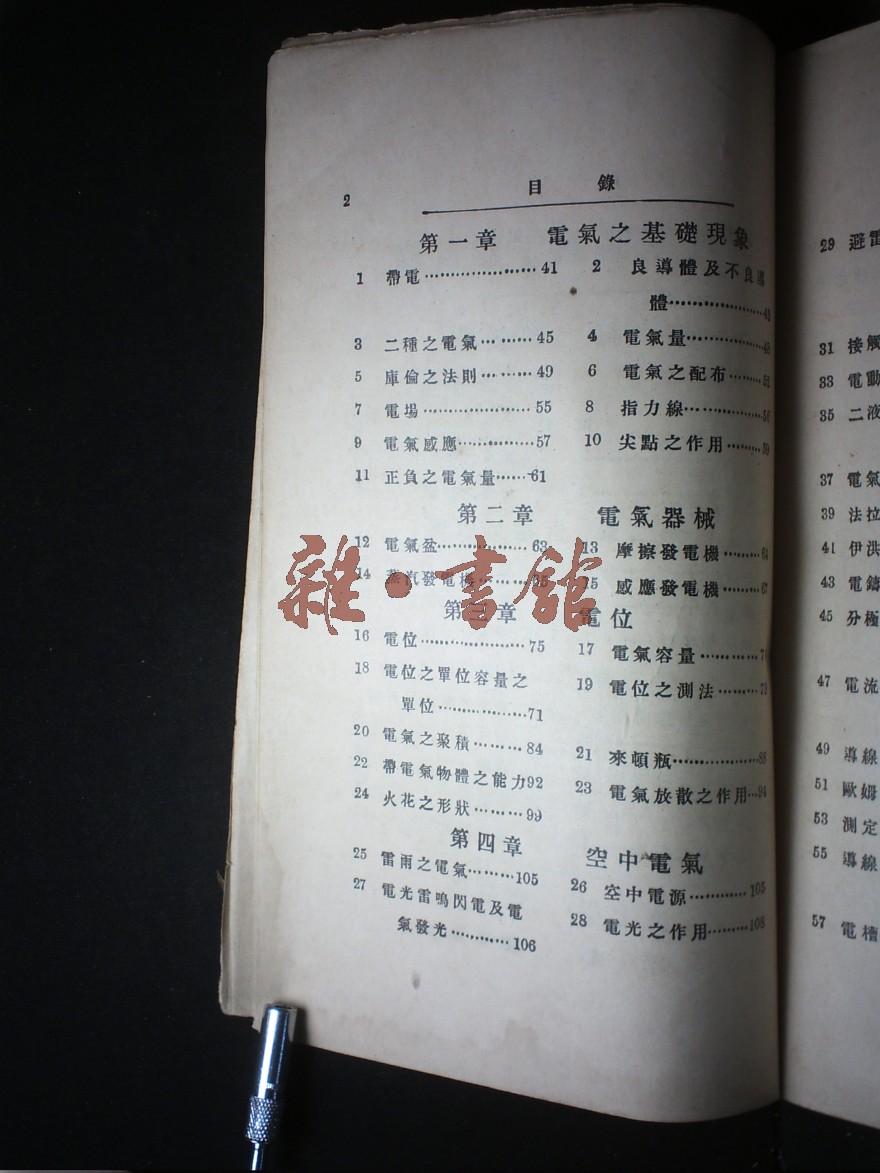 2 目錄
第一章 電氣之基礎現象
1 帶電……………………41 2 良導體及不良導
體……………………43
3 二種之電氣…………45 4 電氣量……………
5 庫倫之法則…………49 6 電氣之配布………
7 電場……………………55 8 指力線……………56
9 電氣感應………………57 10 尖點之作用………59
11 正負之電氣量………61
第二章 電氣器械
12 電氣盆…………………63 13 摩擦發電機………64
14 蒸汽發電機………… 15 感應發電機………67
第三章 電位
16 電位……………………75 17 電氣容量…………
18 電位之單位容量之 19 電位之測法………
單位………………71
20 電氣之聚積…………84 21 來頓瓶………………88
22 帶電氣物體之能力92 23 電氣放散之作用…94
24 火花之形狀…………99
第四章 空中電氣
25 雷雨之電氣…………105 26 空中電源…………105
27 電光雷鳴閃電及電 28 電光之作用………108
氣發光…………106
29 避雷
31 接觸
33 電動
35 二液
37 電氣
39 法拉
41 伊洪
43 電鑄
45 分極
47 電流
49 導線
51 歐姆
53 測定
55 導線
57 電槽
雜·書館